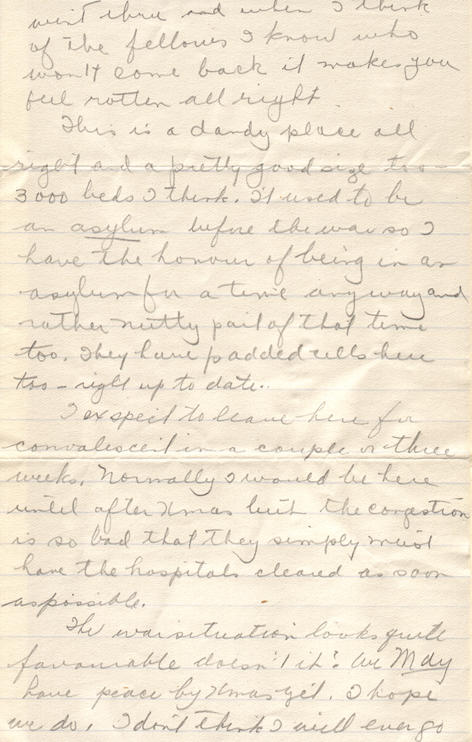 went thru and when I think
of the fellows I know who
won't come back it makes you
feel rotten all right
This is a dandy place all
right and a pretty good size too -
3000 beds I think. It used to be
an asylum before the war so I
have the honour of being in an
asylum for a time anyway and
rather nutty part of that time
too. They have padded cells here
too - right up to date.
I expect to leave here for
convalescent in a couple or three
weeks. Normally I would be here
until after Xmas but the congestion
is so bad that they simply must
have the hospitals cleared as soon
as possible.
The war situation looks quite
favourable doesn't it? We May
have peace by Xmas yet. I hope
we do. I don't think I will ever go